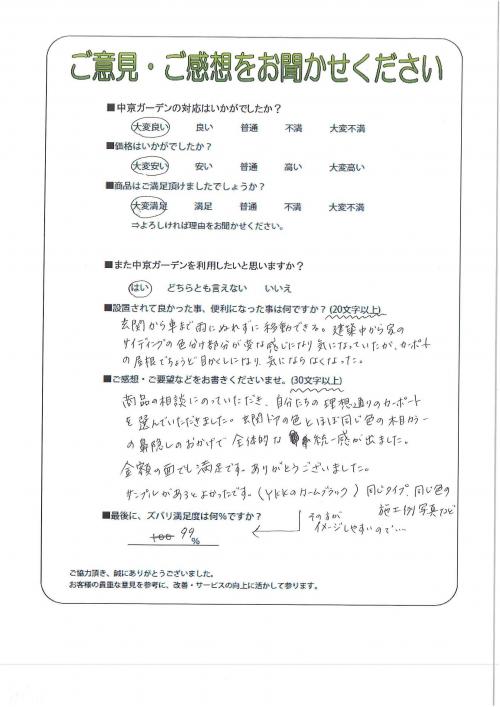 ご意見・ご感想をお聞かせください
■中京ガーデンの対応はいかがでしたか？
大変良い 良い 普通 不満 大変不満
■価格はいかがでしたか？
大変安い 安い 普通 高い 大変高い
■商品はご満足頂けましたでしょうか？
大変満足 満足 普通 不満 大変不満
⇒よろしければ理由をお聞かせください。
■また中京ガーデンを利用したいと思いますか？
はい どちらとも言えない いいえ
■設置されて良かった事、便利になった事は何ですか？(20文字以上)
玄関から車まで雨にぬれずに移動できる。建築中から家の
サイディングの色分け部分が変な感じになり気になっていたが、カーポート
の屋根でちょうど目かくしになり、気にならなくなった。
■ご感想・ご要望などをお書きくださいませ。(30文字以上)
商品の相談にのっていただき、自分たちの理想通りのカーポート
を選んでいただきました。玄関ドアの色とほぼ同じ色の木目カラー
の鼻隠しのおかげで全体的な統一感が出ました。
金額の面でも満足です。ありがとうございました。
サンプルがあるとよかったです。(YKKのカームブラック) 同じタイプ、同じ色の
施工例写真など
その方が
イメージしやすいので…
■最後に、ズバリ満足度は何％ですか？
100 99 %
ご協力頂き、誠にありがとうございました。
お客様の貴重な意見を参考に、改善・サービスの向上に活かして参ります。